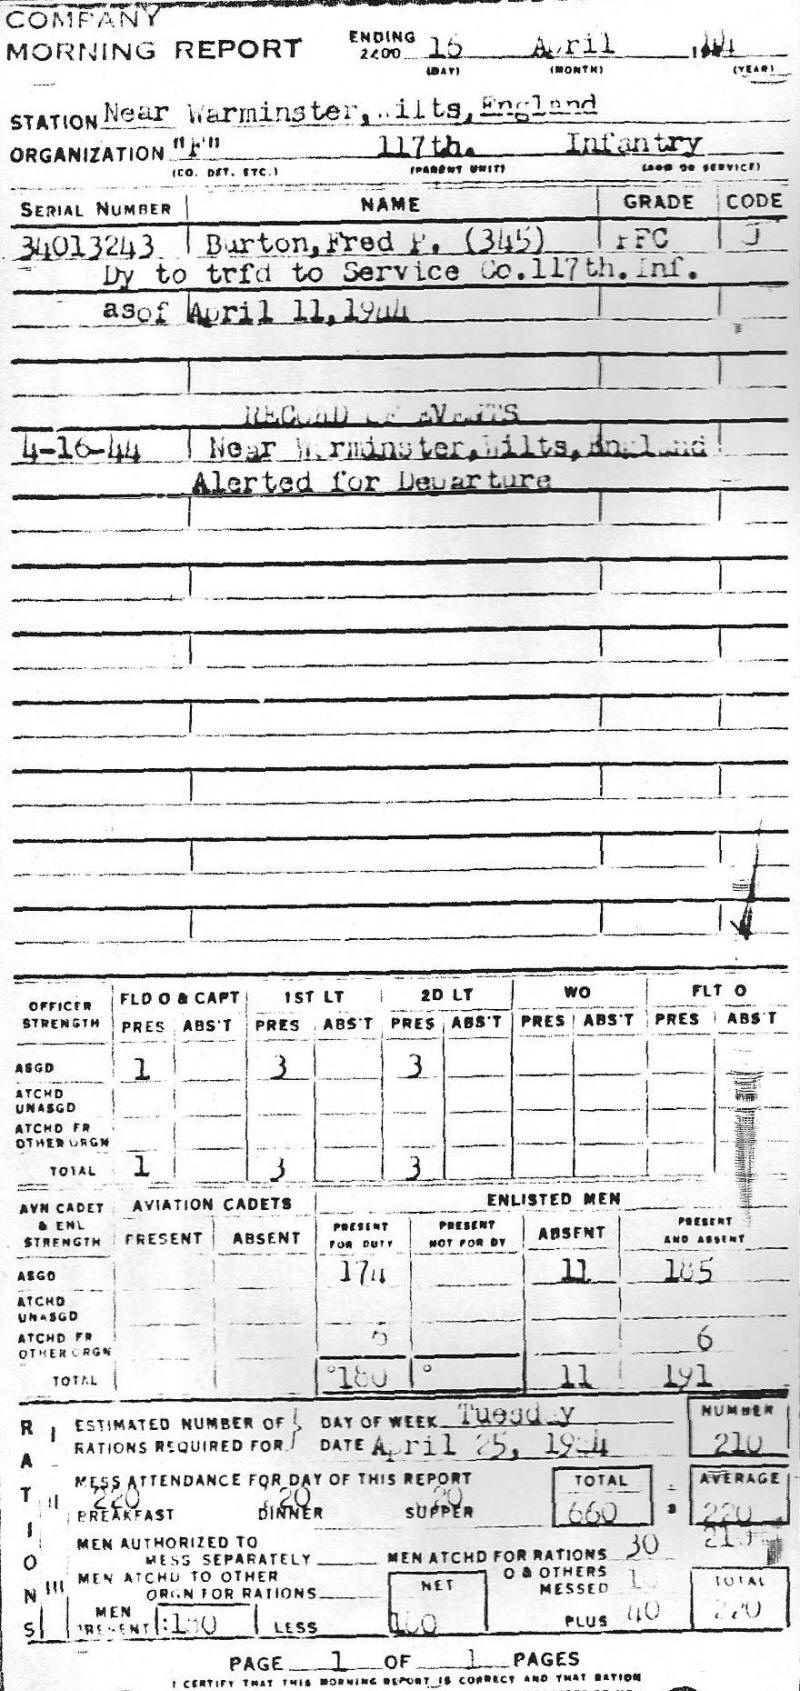 COMPANY
MORNING REPORT ENDING 2400 16 April
(DAY) (MONTH) (YEAR)
STATION Near Warminster, Wilts, England
ORGANIZATION "F" 117th. Infantry
(CO. DET. ETC.) (PARENT UNIT) (ARM OR SERVICE)
SERIAL NUMBER NAME GRADE CODE
34013243 Burton, Fred P. (345) PFC J
Dy to trfd to Service Co. 117th. Inf.
asof April 11, 1944
RECORD OF EVENTS
4-16-44 Near Warminster, Wilts, England
Alerted for Departure
OFFICER STRENGTH FLD O & CAPT 1ST LT 2D LT WO FLT O
PRES ABS'T PRES ABS'T PRES ABS'T PRES ABS'T PRES ABS'T
ASGD 1 3 3
ATCHD UNASGD
ATCHD FR OTHER ORGN
TOTAL 1 3 3
AVN CADET & ENL STRENGTH AVIATION CADETS ENLISTED MEN
PRESENT ABSENT PRESENT FOR DUTY PRESENT NOT FOR DY ABSENT PRESENT AND ABSENT
ASGD 174 11 185
ATCHD UNASGD
ATCHD FR OTHER ORGN 6 6
TOTAL 180 11 191
RATIONS
I ESTIMATED NUMBER OF RATIONS REQUIRED FOR DAY OF WEEK Tuesday NUMBER
DATE April 25, 1944 210
II MESS ATTENDANCE FOR DAY OF THIS REPORT TOTAL AVERAGE
220 220 220
BREAKFAST DINNER SUPPER 660 3 220
MEN AUTHORIZED TO MESS SEPARATELY MEN ATCHD FOR RATIONS 30
III MEN ATCHD TO OTHER ORGN FOR RATIONS NET O & OTHERS MESSED 10 TOTAL
MEN PRESENT 180 LESS 180 PLUS 40 220
PAGE 1 OF 1 PAGES
I CERTIFY THAT THIS MORNING REPORT IS CORRECT AND THAT RATION